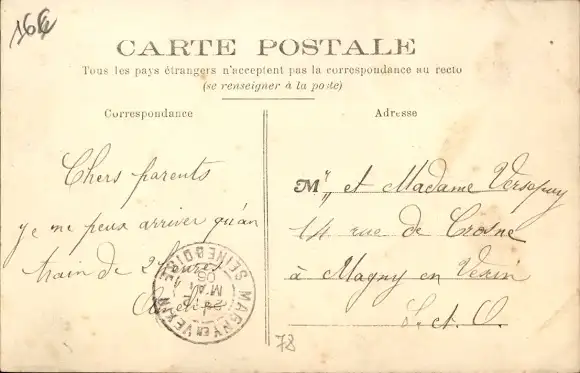 166
CARTE POSTALE
Tous les pays étrangers n'acceptent pas la correspondance au recto
(se renseigner à la poste)
Correspondance
Chers parents
je ne peux arriver qu'au
train de 2 heures
Adresse
M et Madame Versepuy
14 rue de Crosne
à Magny en Vexin
S. et O.
MAGNY EN VEXIN
SEINE ET OISE
78